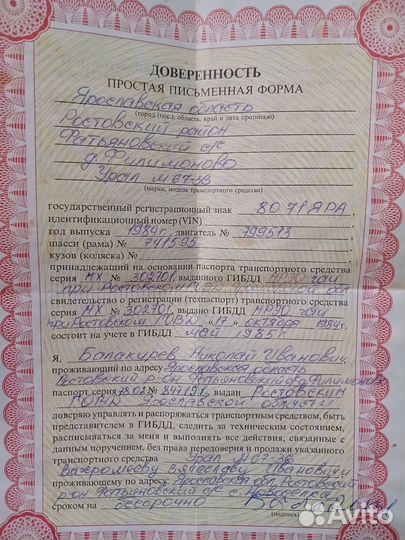 ДОВЕРЕННОСТЬ
ПРОСТАЯ ПИСЬМЕННАЯ ФОРМА
Ярославская область
(город (пос.), область, край и дата прописью)
Ростовский район
Фатьяновский с/с
д. Филимоново
Урал М67-36
(марка, модель транспортного средства)
государственный регистрационный знак 8071ЯРА
идентификационный номер (VIN)
год выпуска 1984г., двигатель № 799513
шасси (рама) № 741595
кузов (коляска) №
принадлежащий на основании паспорта транспортного средства
серия МХ № 302701, выданного ГИБДД МРЭО ГАИ
при Ростовском
свидетельство о регистрации (техпаспорт) транспортного средства
серия МХ № 302701, выдано ГИБДД МРЭО ГАИ
при Ростовском "17" октября 1984г.
состоит на учете в ГИБДД май 1985г
Я, Балакирев Николай Иванович
проживающий по адресу Ярославская область
Ростовский р-он Фатьяновский с/с д. Филимоново
паспорт серия выдан Ростовским
Ярославской области
доверяю управлять и распоряжаться транспортным средством, быть
представителем в ГИБДД, следить за техническим состоянием,
расписываться за меня и выполнять все действия, связанные с
данным поручением, без права передоверия и продажи указанного
транспортного средства Урал М67-36
Вячеславу Ивановичу
проживающему по адресу: Ярославская обл. Ростовский
р-он Фатьяновский с/с с.
сроком на бессрочно
(подпись)
Avito